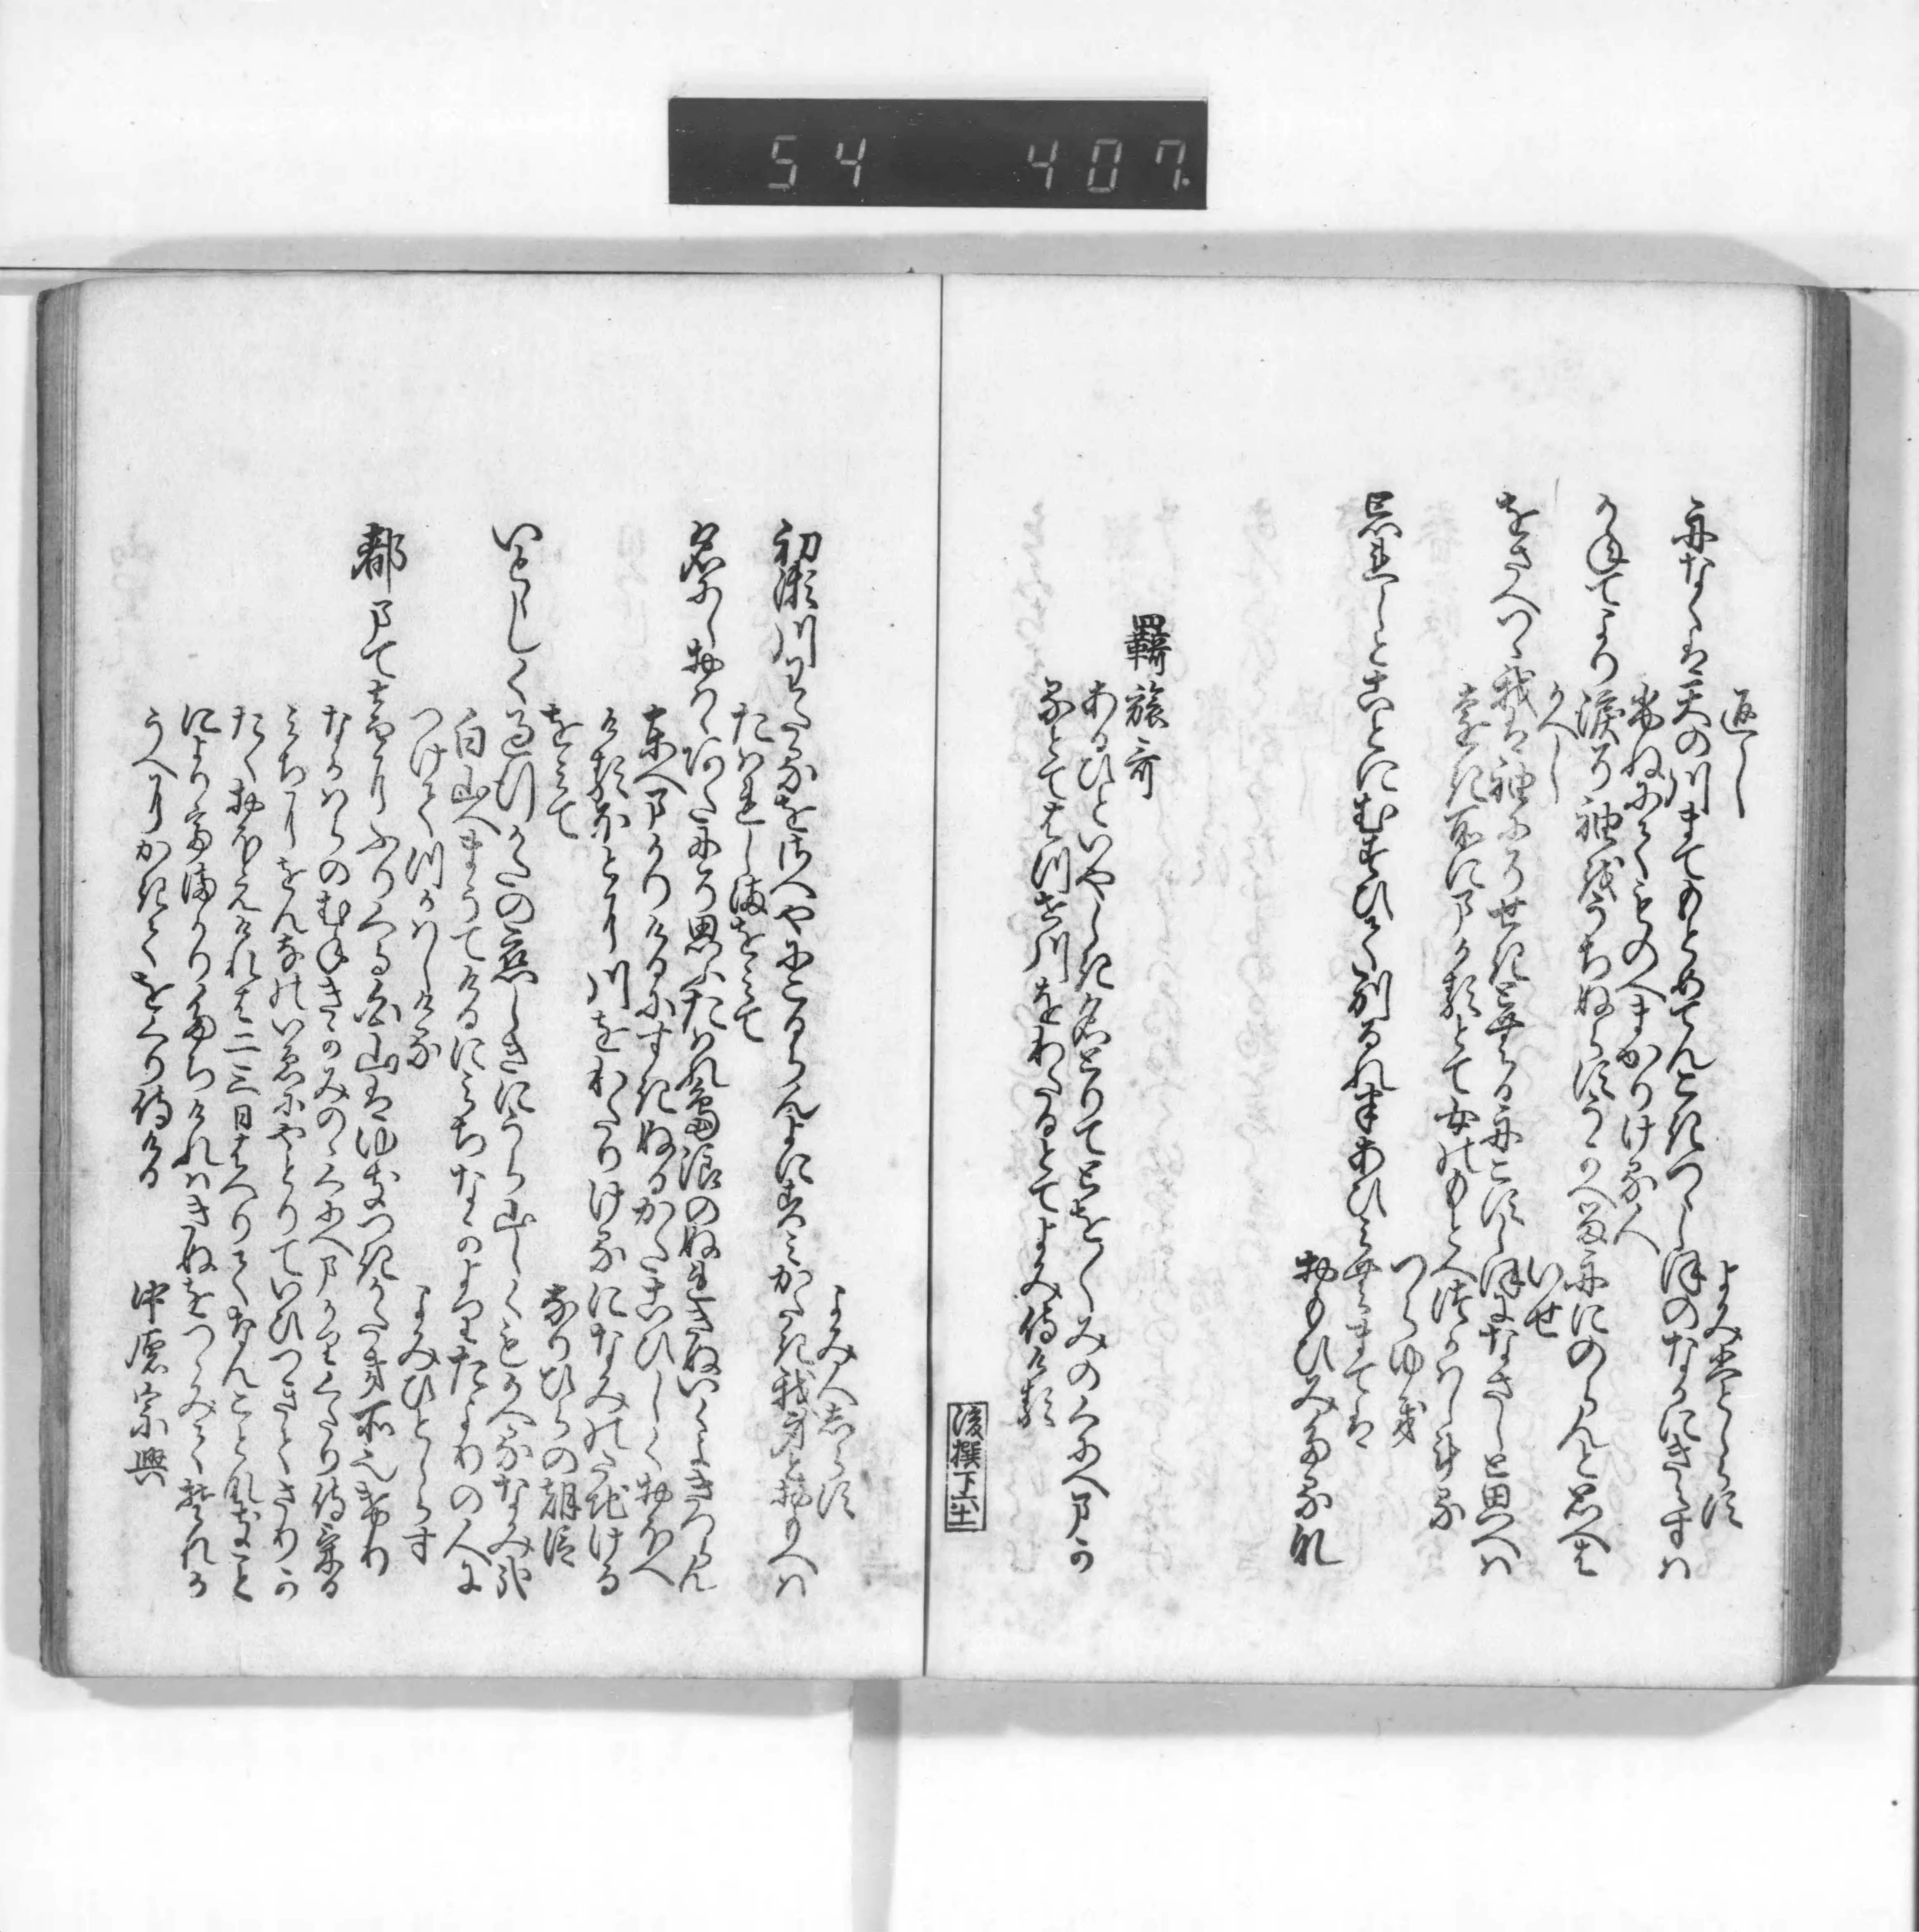 返し　よみ人しらす
舟なくは天の川まてもとめてんこきつゝ塩のなかにきえすは
舟にてものへまかりける人
かねてより涙そ袖をうちぬらすうかへる舟にのらんと思へは
かへし　いせ
をさへつゝ我は袖にそせきとむる舟こす塩になさしと思へは
遠き所にまかるとて女のもとへつかはしける
つらゆき
忘れしとことにむすひて別るれはあひみむまては
おもひみたるな
羇旅哥
あるひといやしき名とりてとをたうみのくにへまか
るとてはつせ川をわたるとてよみ侍ける
後撰下六十一
よみ人しらす
初瀬川わたるせさへやにこるらんよにすみかたき我身とおもへは
たはれしまをみて
名にしおはゝあたにそ思ふたはれ嶋浪のぬれきぬいくよきつらん
東へまかりけるにすきぬるかたこひしくおほへ
けるほとに川をわたりけるになみのたちける
をみて　なりひらの朝臣
いとゝしく過行かたの恋しきにうら山しくもかへるなみ哉
白山へまうてけるにみちなかよりたよりの人に
つけてつかはしける　よみひとしらす
都まてをとにふりくる白山はゆきつきかたき所なりけり
なかはらのむねきかみのゝくにへまかりくたり侍ける
みちにをんなのいゑにやとりていひつきてさりか
たくおほえけれは二三日はへりてやんことなきこと
によりてまかりたちけれはきぬをつゝみてそれか
うへにかきてをくり侍ける　中原宗興